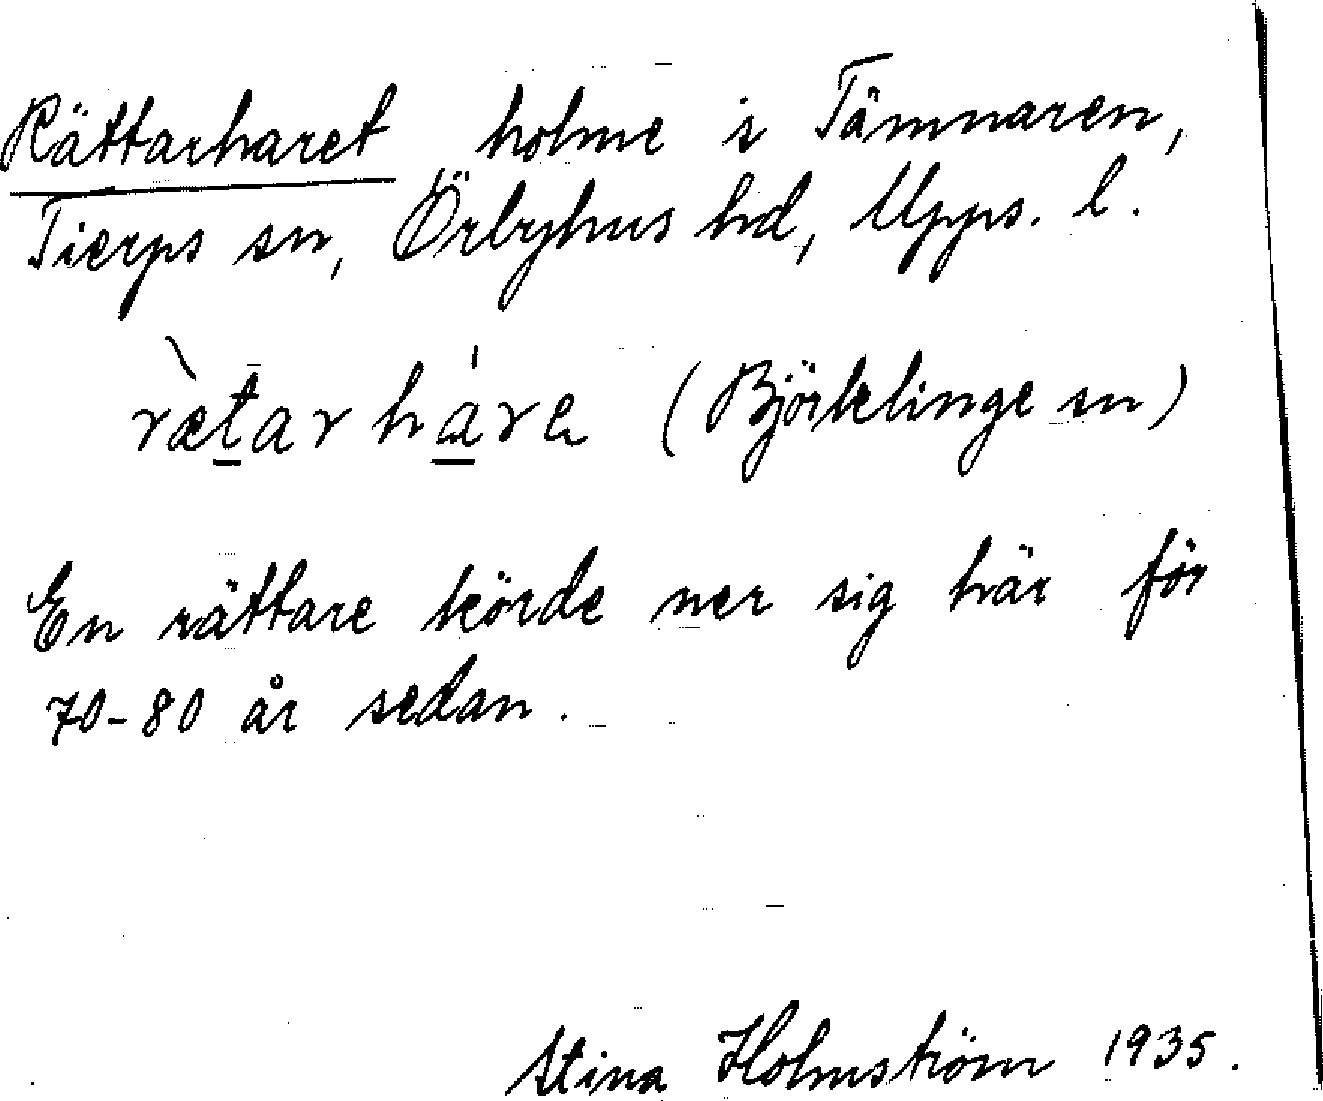 Rättarharet, holme i Tämnaren,
Tierps sn, Örbyhus hd, Upps. l.
rὰ̀etarhárα (Björklinge sn)
En rättare körde ner sig här för
70-80 år sedan.
Stina Holmström 1935.